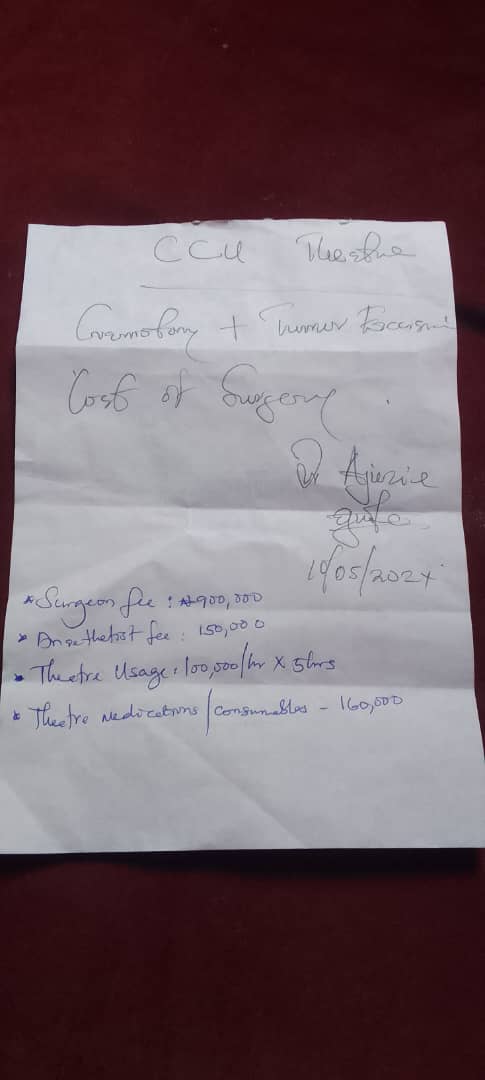 CCU Theatre
Craniotomy + Tumor Excision
Cost of Surgery.
Dr Ajiezie
10/05/2024
* Surgeon fee : ₦900,000
* Anaethetist fee : 150,000
* Theatre Usage : 100,000/hr X 5hrs
* Theatre medications/consumables - 160,000